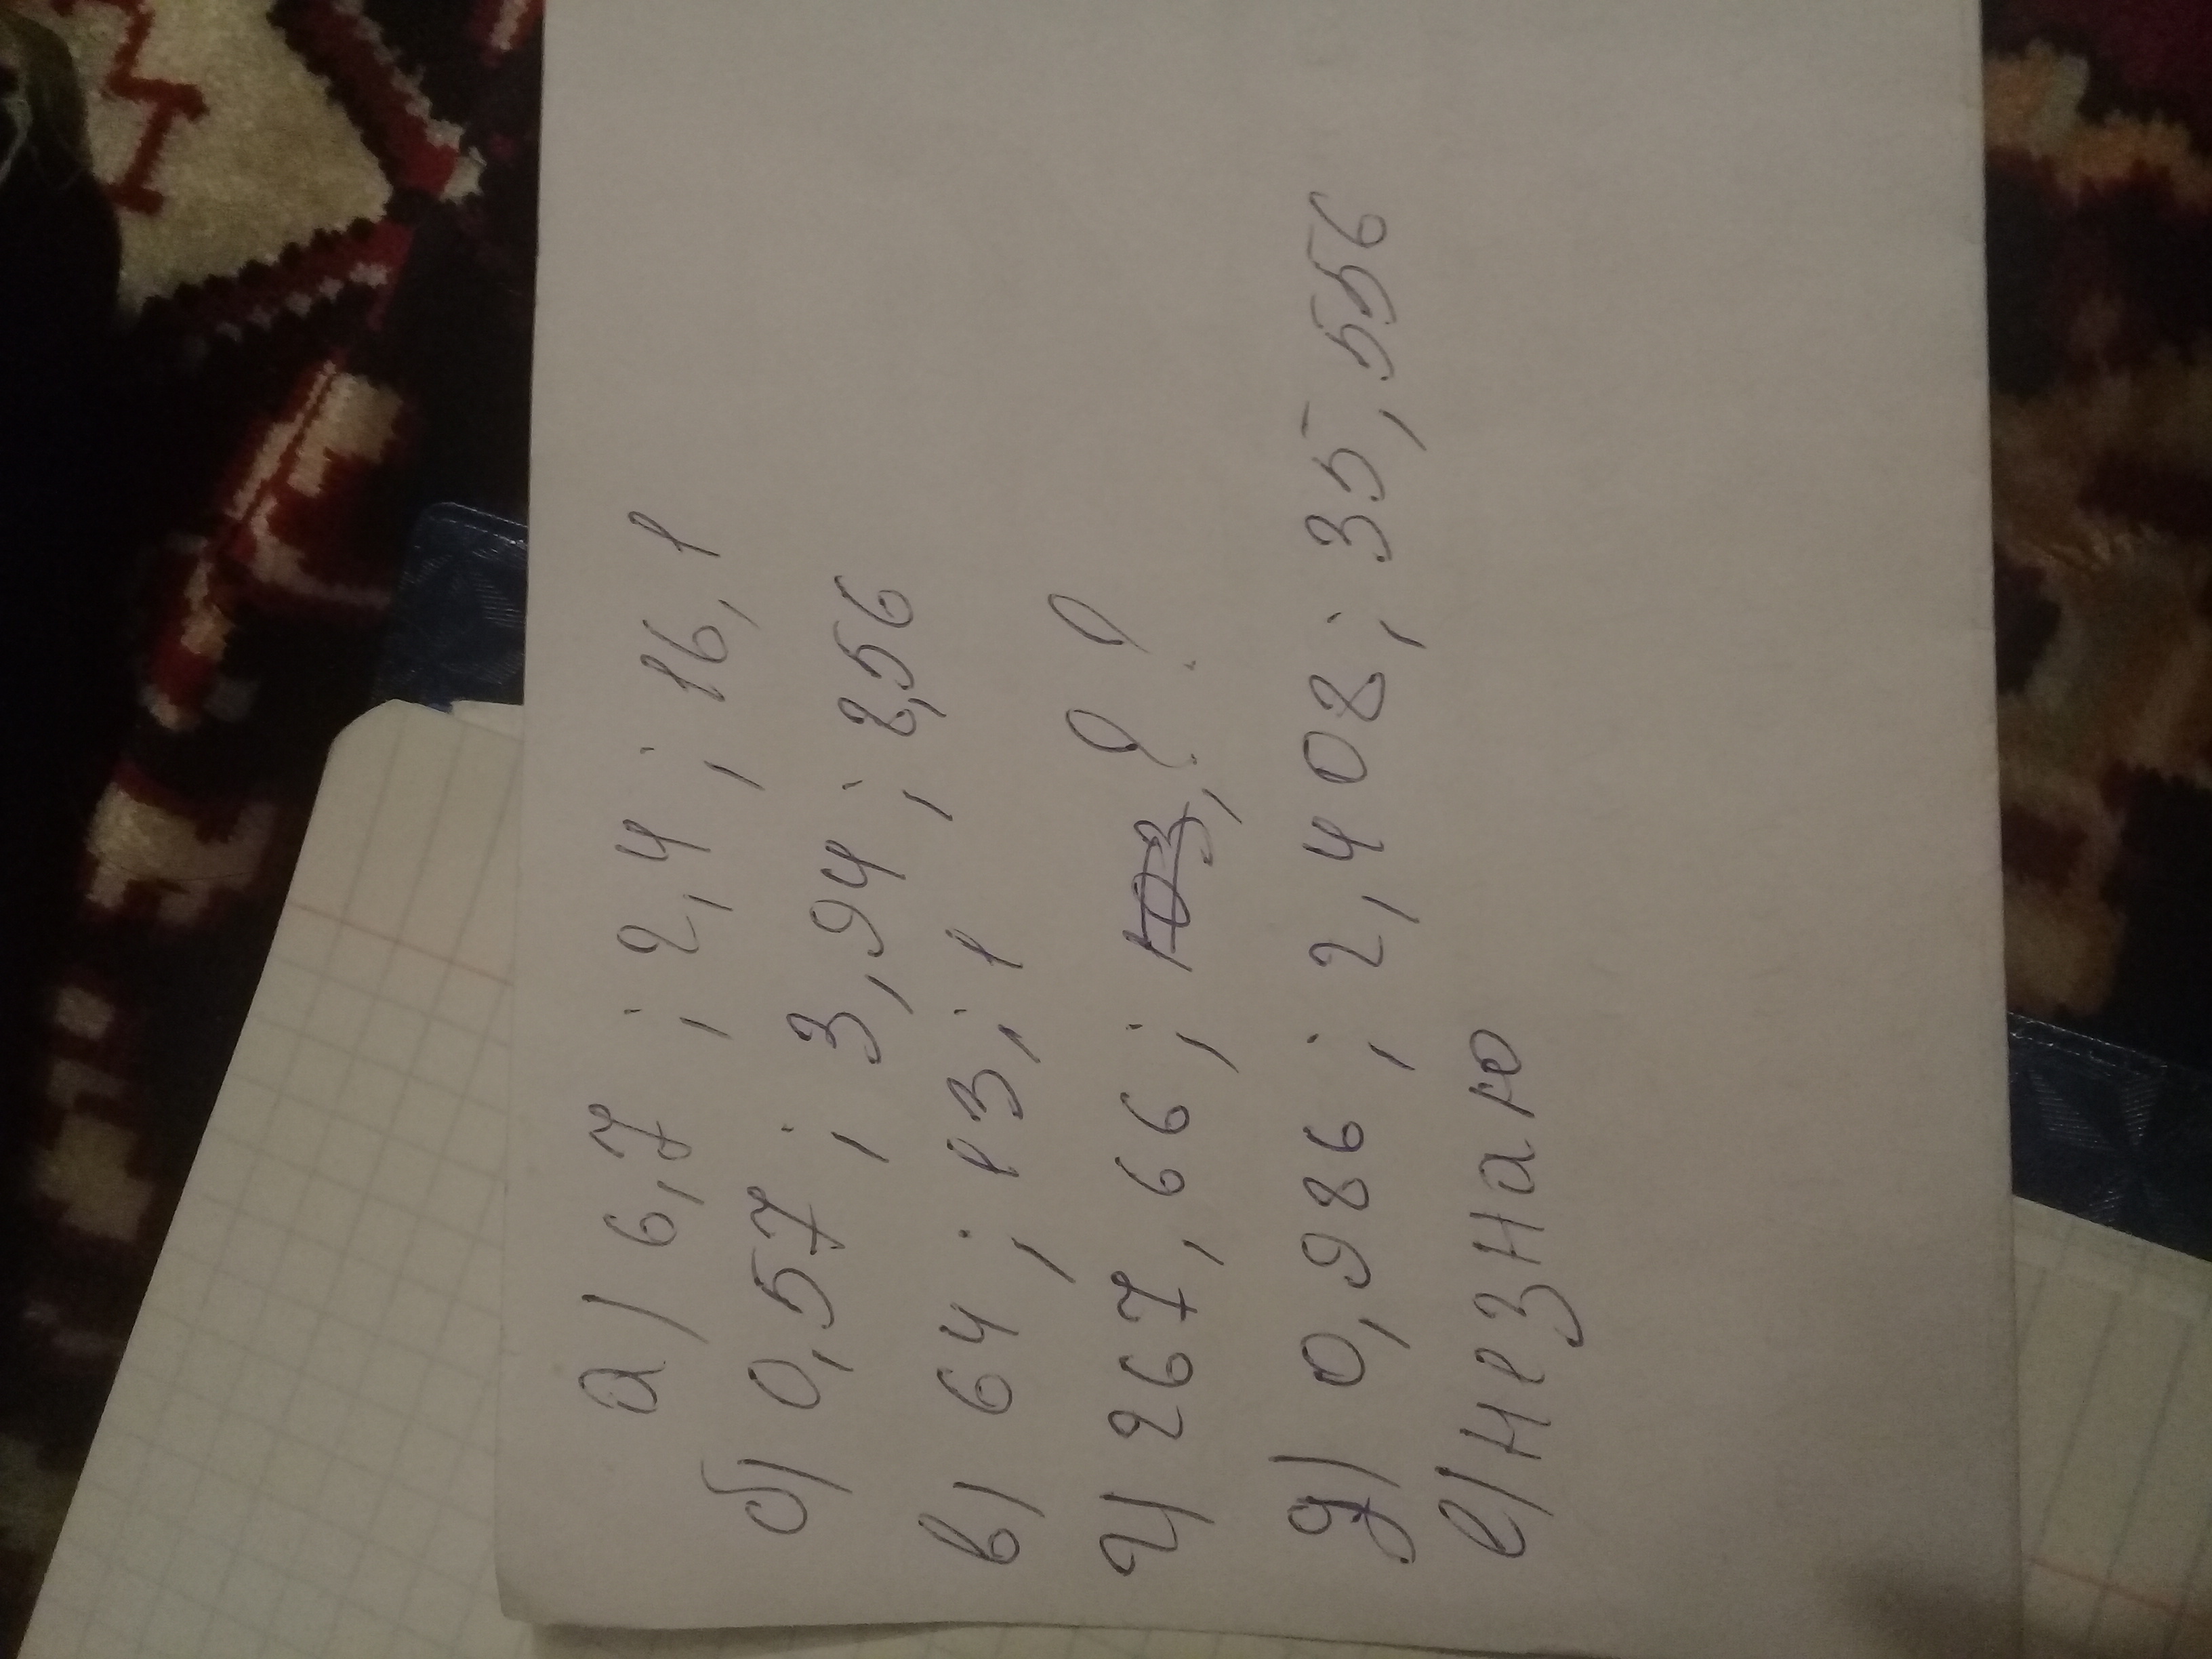 а) 6,7 ; 2,4 ; 16,1
б) 0,57 ; 3,94 ; 8,56
в) 64 ; 13 ; 1
г) 267,66 ; 103, ? ?
д) 0,986 ; 2,408 ; 35,556
е) не знаю